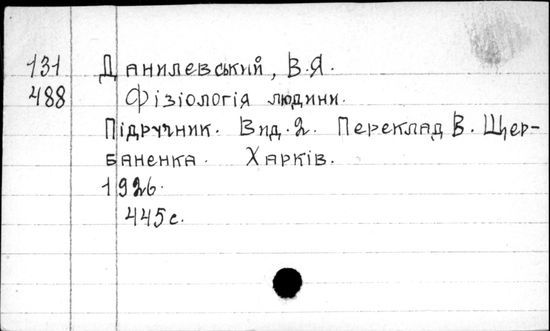 131 Данилевський, В.Я.
488 Фізіологія людини.
Підручник. Вид. 2. Переклад В. Щер-
баненка. Харків.
1926.
445 с.